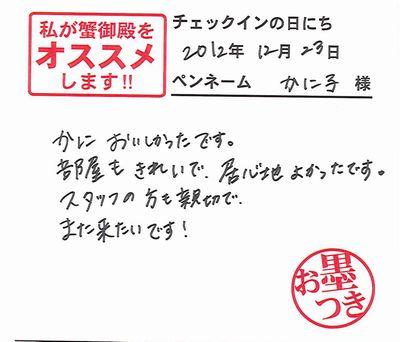 私が蟹御殿を
オススメ
します!!
チェックインの日にち
2012年 12月 23日
ペンネーム かに子 様
かに おいしかったです。
部屋も きれいで、居心地 よかったです。
スタッフの方も親切で、
また来たいです!
お墨つき